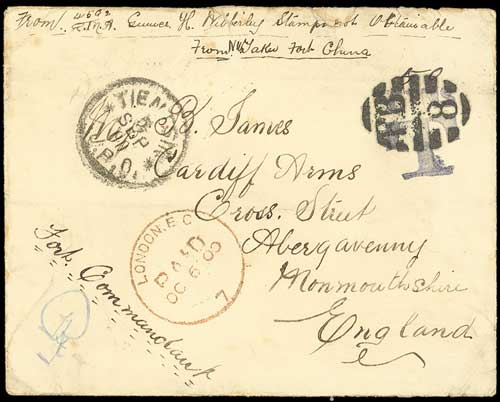 From 4502
R.M.A. Gunner H. Wibberley Stamps not Obtainable
From N.W. Taku Fort China
TIENTSIN
SEP
00
B.P.O.
B. James
Cardiff Arms
Cross. Street
Abergavenny
Monmouthshire
England
LONDON. E.C
PAID
OC 6 00
7
Fort.
Commandant
B
8
1